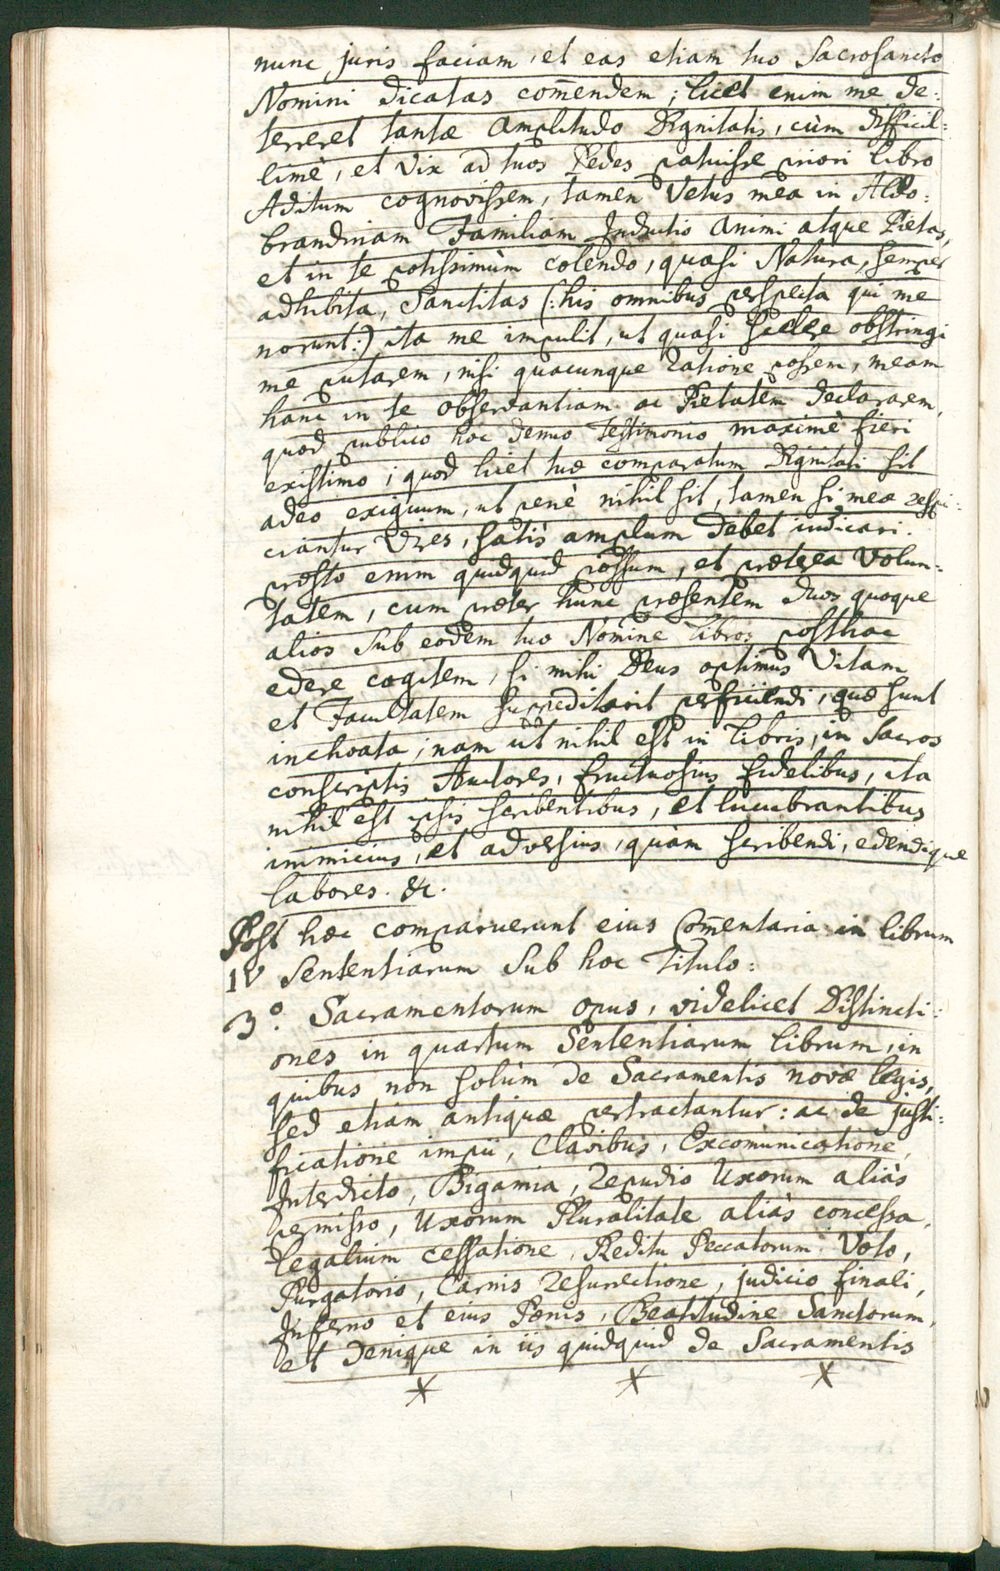 nunc juris faciam, et eas etiam tuo Sacrosancto
Nomini dicatas com̄endem; licet enim me de:
terreret tantæ Amplitudo Dignitatis, cùm difficil=
limè, et vix ad tuos Pedes patuisse priori libro
Aditum cognovissem, tamen Vetus mea in Aldo:
brandinam Familiam Inductio Animi atque Pietas,
et in te potissimùm colendo, quasi Natura, semper
adhibita, Sanctitas (: his omnibus perspecta qui me
norunt:) ita me impulit, ut quasi scelere obstringi
me putarem, nisi quacunque ratione possem, meam
hanc in te observantiam ac Pietatem declararem,
quod publico hoc demum Testimonio maximè fieri
existimo; quod licet tuæ comparatum Dignitati sit
adeo exiguum, ut penè nihil sit, tamen si meæ respi:
ciantur Vires, satis amplum debet iudicari.
præsto enim quidquid possum, et præterea Volun=
tatem, cum præter hunc præsentem duos quoque
alios sub eodem tuo Nomine libros posthac
edere cogitem, si mihi Deus optimus Vitam
et Facultatem suppeditarit perficiendi, quæ sunt
inchoata; nam ut nihil est in libris, in Sacros
conscriptis Auctores, fructuosius fidelibus, ita
nihil est ipsis scribentibus, et lucubrantibus
inimicius, et adversius, quàm scribendi, edendique
labores. &c.
Post hæc comparuerunt eius Com̄entaria in librum
IV Sententiarum sub hoc Titulo:
3º. Sacramentorum opus, videlicet Distincti:
ones in quartum Sententiarum librum, in
quibus non solùm de Sacramentis novæ legis,
sed etiam antiquæ pertractantur: ac de justi=
ficatione impii, Clavibus, Excom̄unicatione,
Interdicto, Bigamia, Repudio Uxorum aliàs
permisso, Uxorum Pluralitate aliàs concessa,
legalium cessatione, Reditu Peccatorum, Voto,
Purgatorio, Carnis Resurectione, judicio finali,
Inferno et eius Pœnis, Beatitudine Sanctorum,
et denique in iis quidquid de Sacramentis